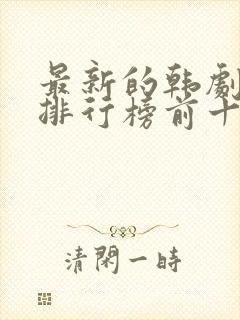 最新的韩劇
排行榜前十
清閑一時